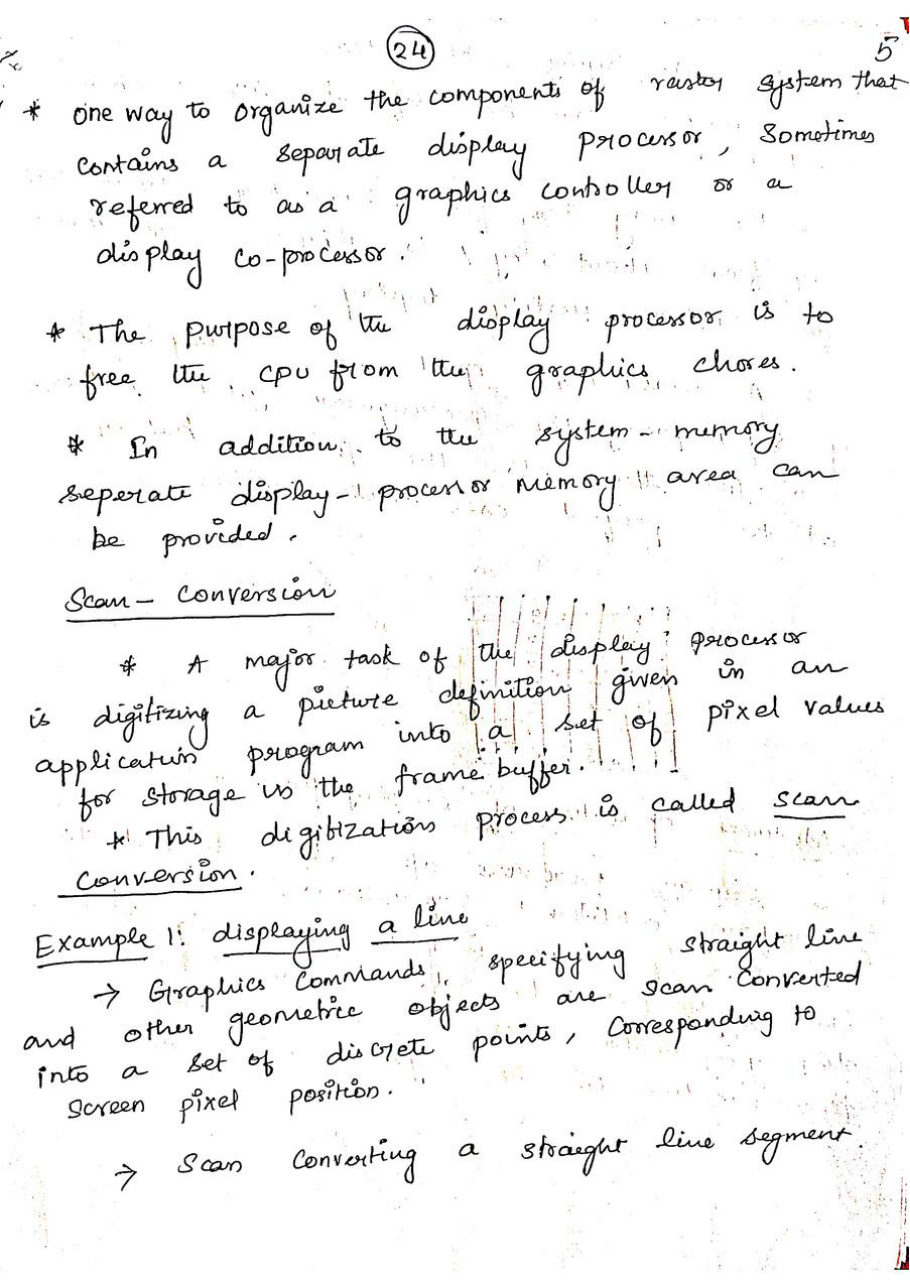 24
5
* one way to organize the components of raster system that
contains a separate display processor, Sometimes
referred to as a graphics controller or a
display co-processor.
* The purpose of the display processor is to
free the CPU from the graphics chores.
* In addition to the system-memory
seperate display-processor memory area can
be provided.
Scan-conversion
* A major task of the display processor
is digitizing a picture definition given in an
application program into a set of pixel values
for storage in the frame buffer.
* This digitization process is called scan
conversion.
Example 1: displaying a line
→ Graphics commands specifying straight line
and other geometric objects are scan converted
into a set of discrete points, corresponding to
screen pixel position.
→ Scan converting a straight line segment